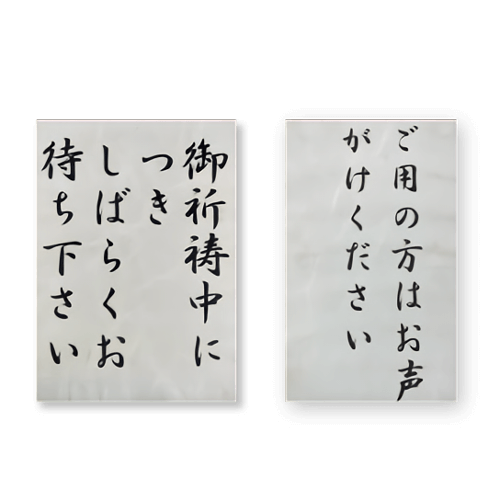 御祈祷中に
つき
しばらくお
待ち下さい
ご用の方はお声
がけください